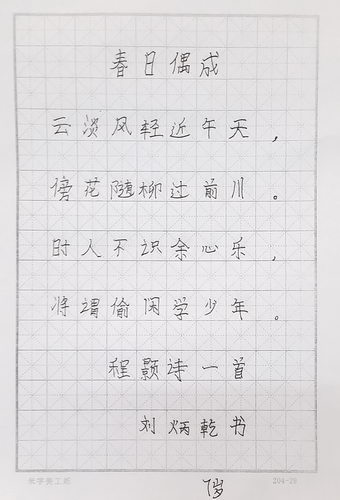 春日偶成
云淡风轻近午天，
傍花随柳过前川。
时人不识余心乐，
将谓偷闲学少年。
程颢诗一首
刘炳乾书
米字美工纸 204-28
7岁